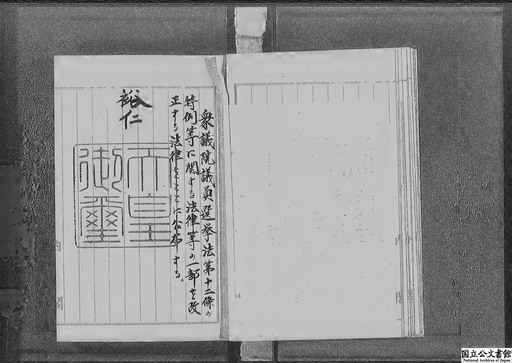 衆議院議員選挙法第十二條の
特例等に関する法律等の一部を改
正する法律をここに公布する。
裕仁
天皇
御璽
国立公文書館
National Archives of Japan